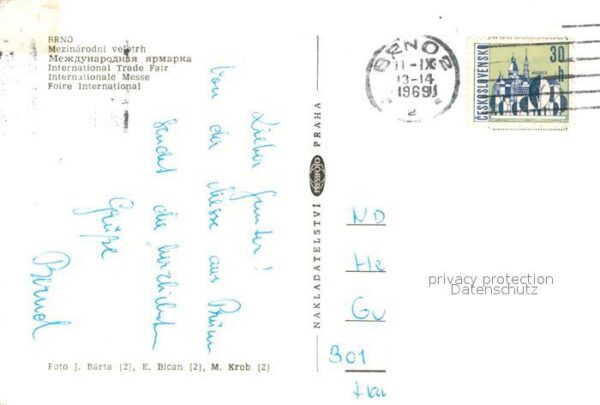 BRNO
Mezinárodní veletrh
Международная ярмарка
International Trade Fair
Internationale Messe
Foire International
Lieber Gunter!
Von der Messe aus Brünn
sendet die herzlichsten
Grüße
Bernd
Foto J. Bárta (2), E. Bican (2), M. Krob (2)
NAKLADATELSTVÍ PRESSFOTO PRAHA
BRNO 2
11-IX
13-14
1969
2
ČESKOSLOVENSKO
30
h
ND
He
Gu
301
Har
privacy protection
Datenschutz